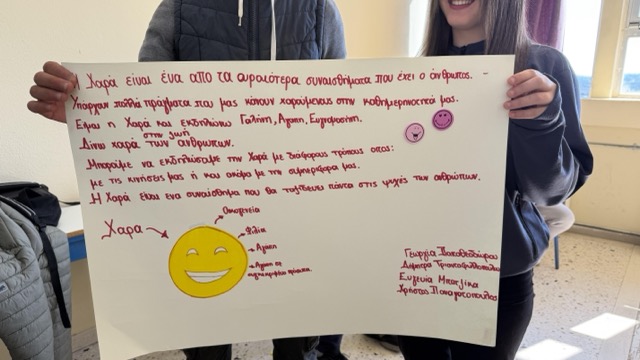 Η Χαρά είναι ένα από τα ωραιότερα συναισθήματα που έχει ο άνθρωπος.
Υπάρχουν πολλά πράγματα που μας κάνουν χαρούμενους στην καθημερινότητά μας.
Είμαι η Χαρά και εκδηλώνω Γαλήνη, Αγάπη, Ευχαρίστηση.
Δίνω χαρά στην ζωή των ανθρώπων.
Μπορούμε να εκδηλώσουμε την Χαρά με διάφορους τρόπους όπως:
με τις κινήσεις μας ή και ακόμα με την συμπεριφορά μας.
Η Χαρά είναι ένα συναίσθημα που θα ταξιδεύει πάντα στις ψυχές των ανθρώπων.
Χαρά
Οικογένεια
Φιλία
Αγάπη
Αγάπη σε συγκεκριμένα πρόσωπα.
Γεωργία Παπαθεοδώρου
Δήμητρα Τριανταφυλλοπούλου
Ευγενία Μπατζίκα
Χρήστος Παναγόπουλος